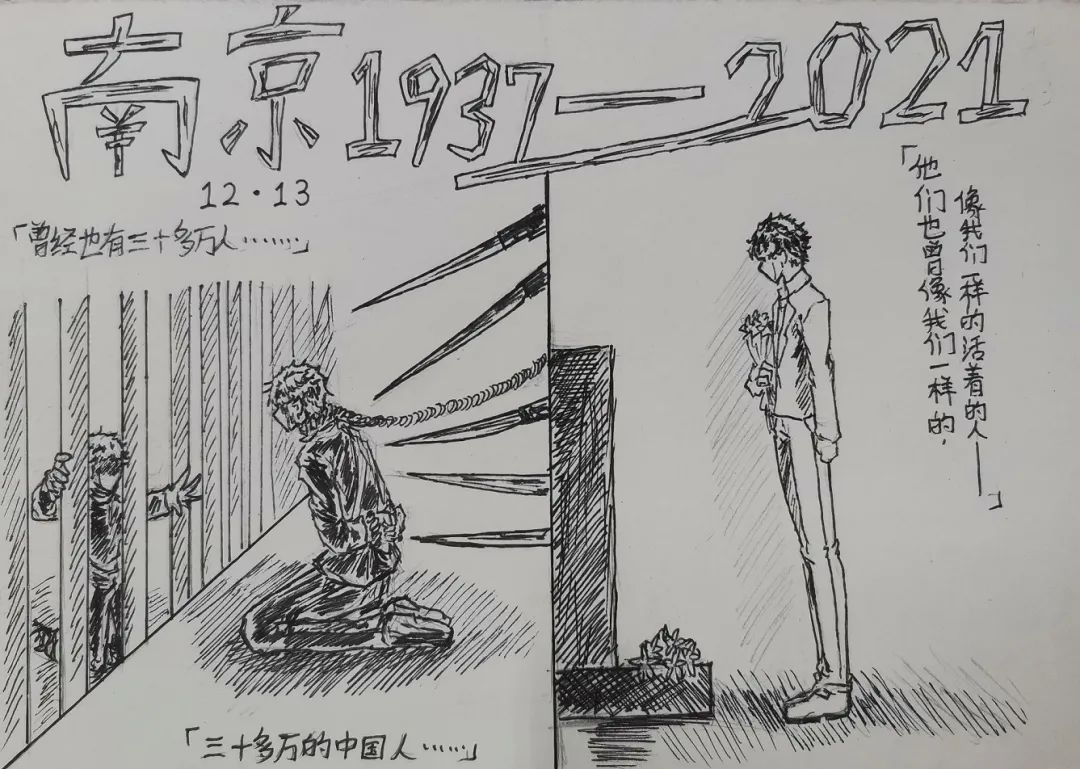 南京1937—2021
12·13
「曾经也有三十多万人………」
「三十多万的中国人……」
「他们也曾像我们一样的，
像我们一样的活着的人——」